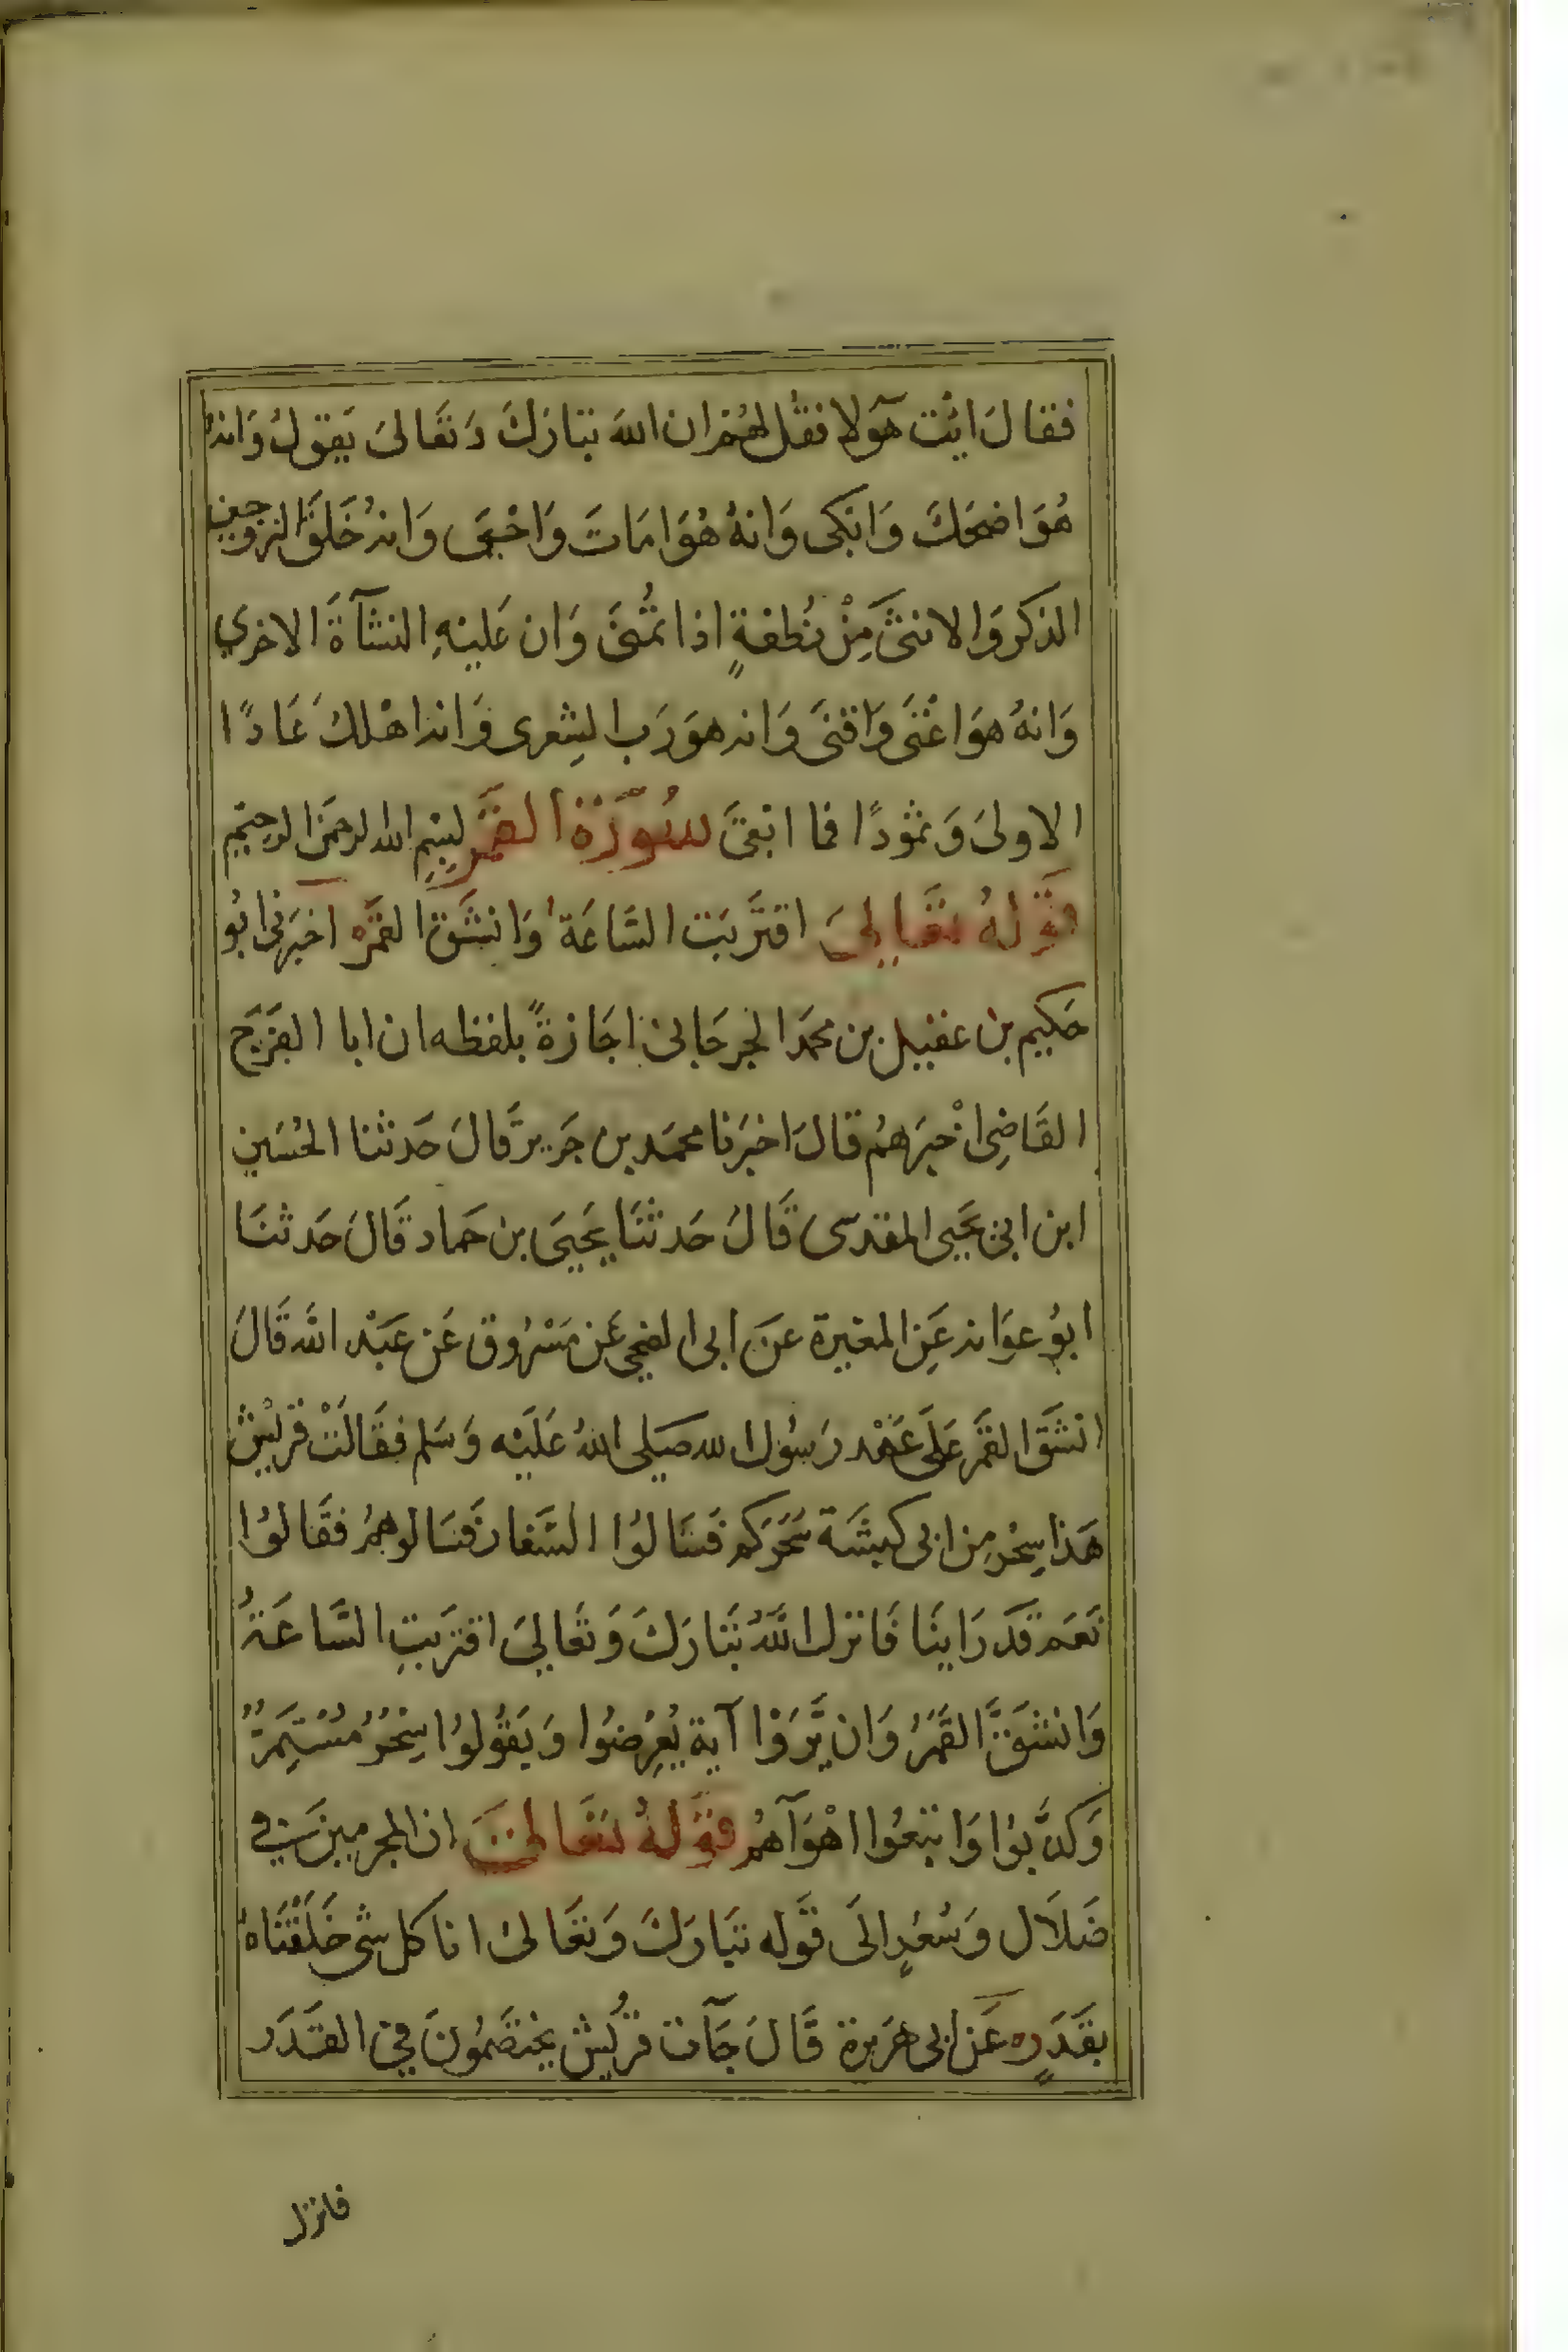 فقالَ ائْت هٓولا فقُل لهُم ان اللهَ تبارَكَ وَتَعَالىَ يَقولُ وَانهُ
هُوَ اضحَكَ وَابَكى وَانهُ هُوَ امَاتَ وَاحْيَى وَانهُ خَلَقَ الزوجين
الذكرَ وَالانثىَ مِنْ نُطفةٍ اذا تُمْنىَ وَان عَليْهِ النشآةَ الاخرى
وَانهُ هوَ اغْنىَ وَاقنىَ وَانه هوَ رَب الشِعرى وَانه اهْلكَ عَادًا
الاولىَ وَثمودًا فما ابقىَ سُوْرَةُ القَمَرِ بسْمِ الله الرحمَن الرحِيْم
قَوْلهُ تعَالىَ اقترَبَت السَّاعَةُ وَانشَقَّ القمَره اخبَرنى ابُو
حَكيم بن عقيل بن محمَد الجرجَانى اجَازةً بلفظه ان ابا الفَرَج
القَاضِى اخْبرَهُم قالَ اخبَرَنا محمَد بن جَرير قَالَ حَدثنا الحُسَين
ابن ابى يحَيى المقدسى قَالَ حَدثنَا يحَيىَ بن حَماد قَالَ حَدثنَا
ابُو عوَانه عَنِ المغيرة عنَ ابى الضحى عَن مَسْرُوق عَن عَبْد الله قَالَ
انشَقَ القمَر عَلىَ عَهْد رَسُول الله صَلى اللهُ عَلَيْه وَسَلم فقَالَتْ قريْش
هَذا سِحْر مِن ابى كبشَة سَحَرَكم فَسَالوُا السّفارَ فسَالوهمُ فقَالوُا
نَعَم قَدَ رَاينَا فَانزل اللهُ تَبَارَكَ وَتَعَالىَ اقترَبتِ السَّاعَةُ
وَانشَقَّ القَمَرُ وَان يَّرَوْا آية يُعِرْضُوا وَيَقُولوُا سِحْرٌ مُسْتَمِرٌّ
وَكذَّبوُا وَاتبَعُوا اهْوَآهُم قَوْلهُ تعَالىَ ان المجرمين في
ضَلاَل وَسُعُرٍ الَى قَوله تَبَارَكَ وَتَعَالىَ انا كل شى خَلَقْنَاهُ
بقَدَرٍه عَن ابى هرَيرة قَالَ جَآت قرُيش يخْتصَمُونَ في القَدَر
فانزل